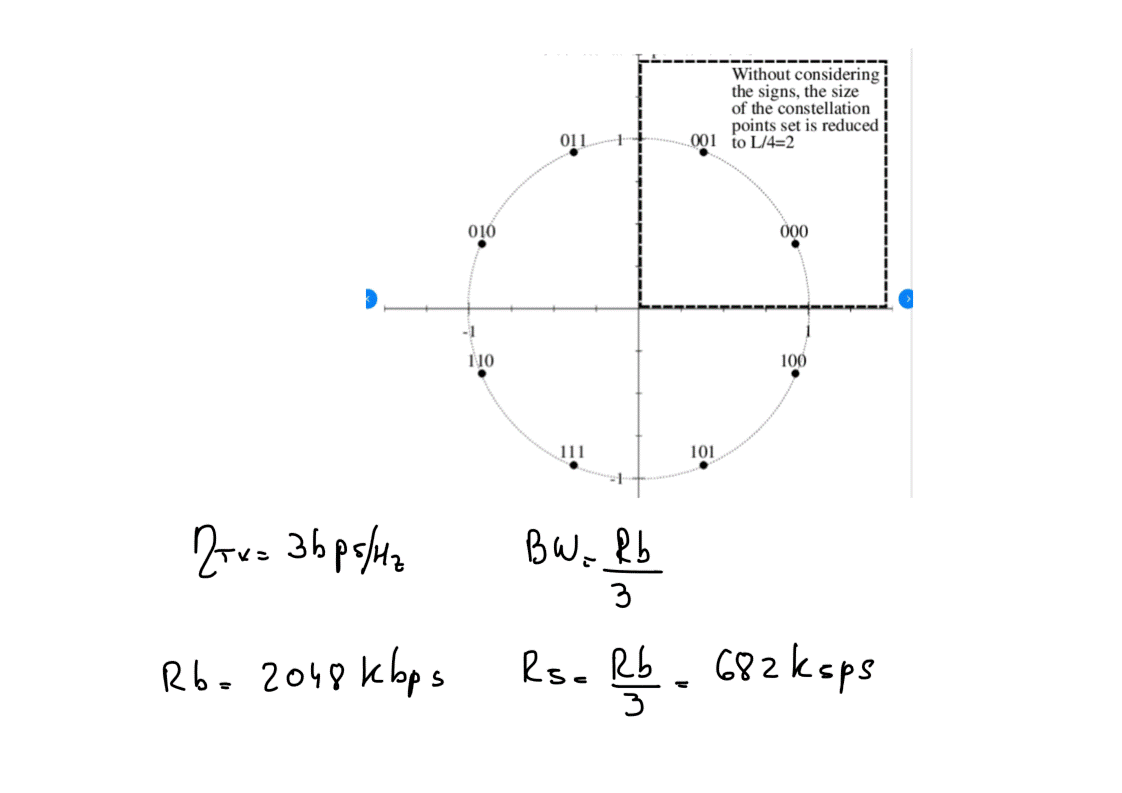 Without considering
the signs, the size
of the constellation
points set is reduced
to L/4=2
011 1 001
010 000
-1 1
110 100
111 101
-1
ηTx= 3bps/Hz BW= Rb/3
Rb= 2048 kbps Rs= Rb/3 = 682 ksps